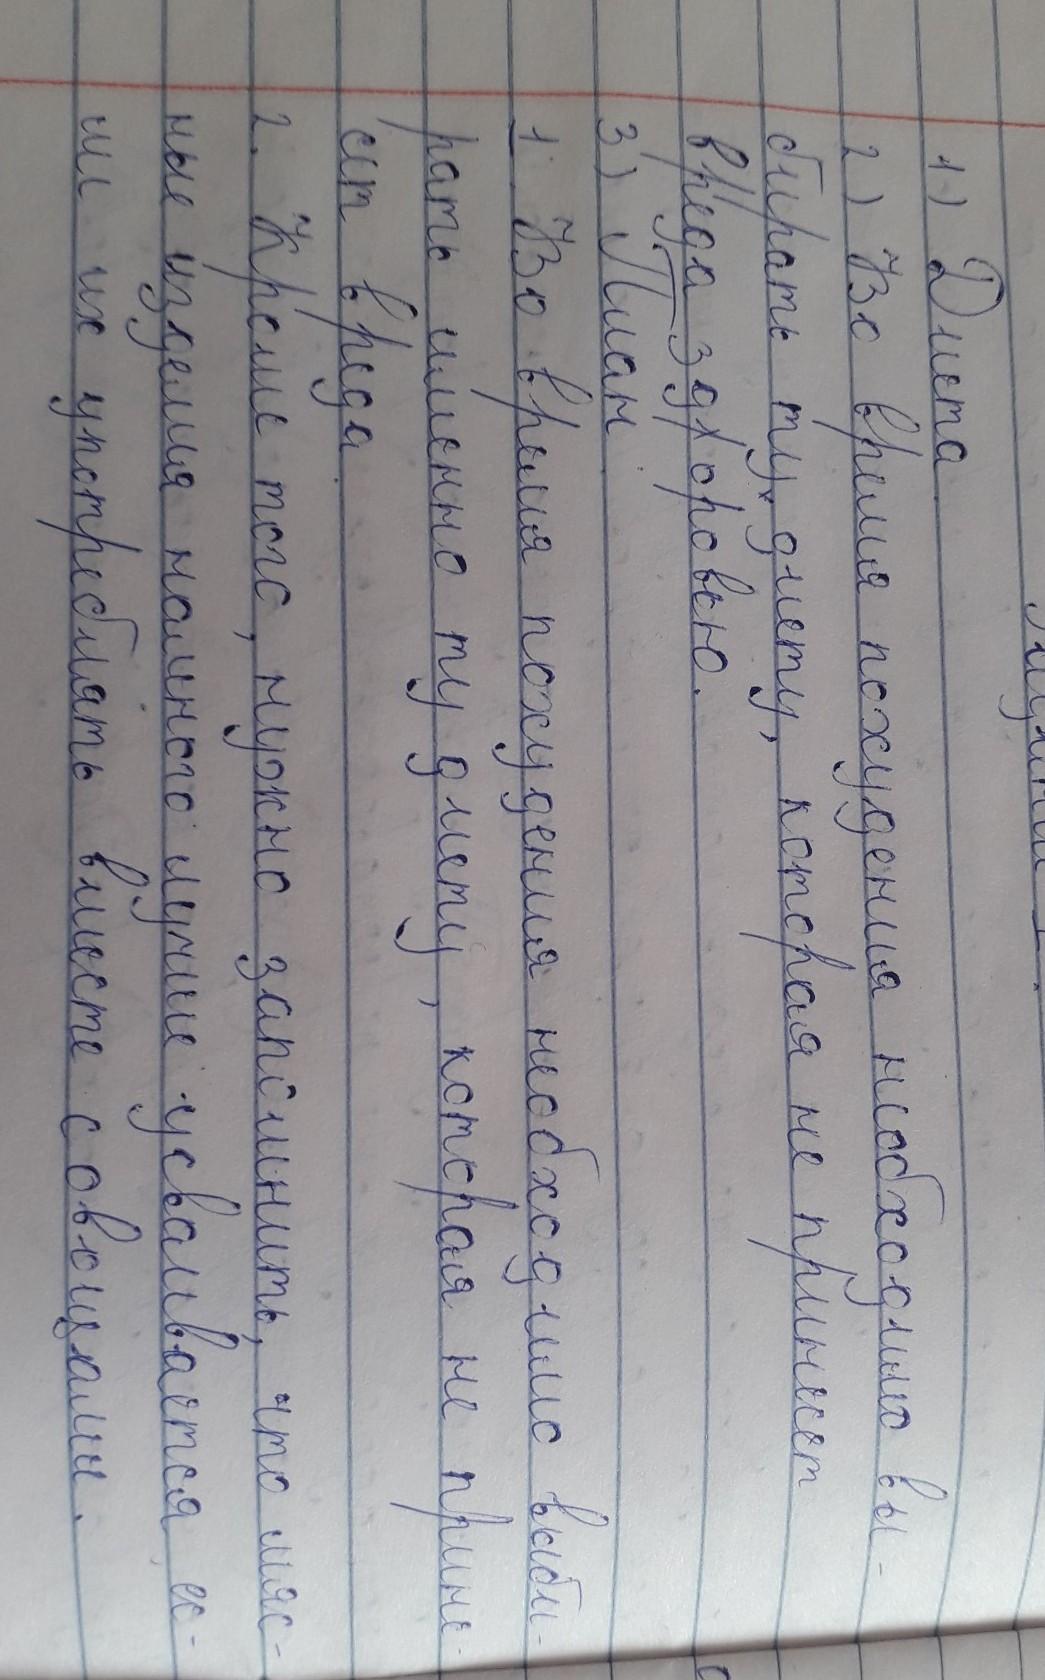 1) Диета
2) Во время похудения необходимо вы-
бирать ту диету, которая не принесет
вреда здоровью.
3) План
1. Во время похудения необходимо выби-
рать именно ту диету, которая не прине-
сёт вреда
2. Кроме того, нужно запомнить, что мяс-
ные изделия намного лучше усваивается ес-
ли их употреблять вместе с овощами.